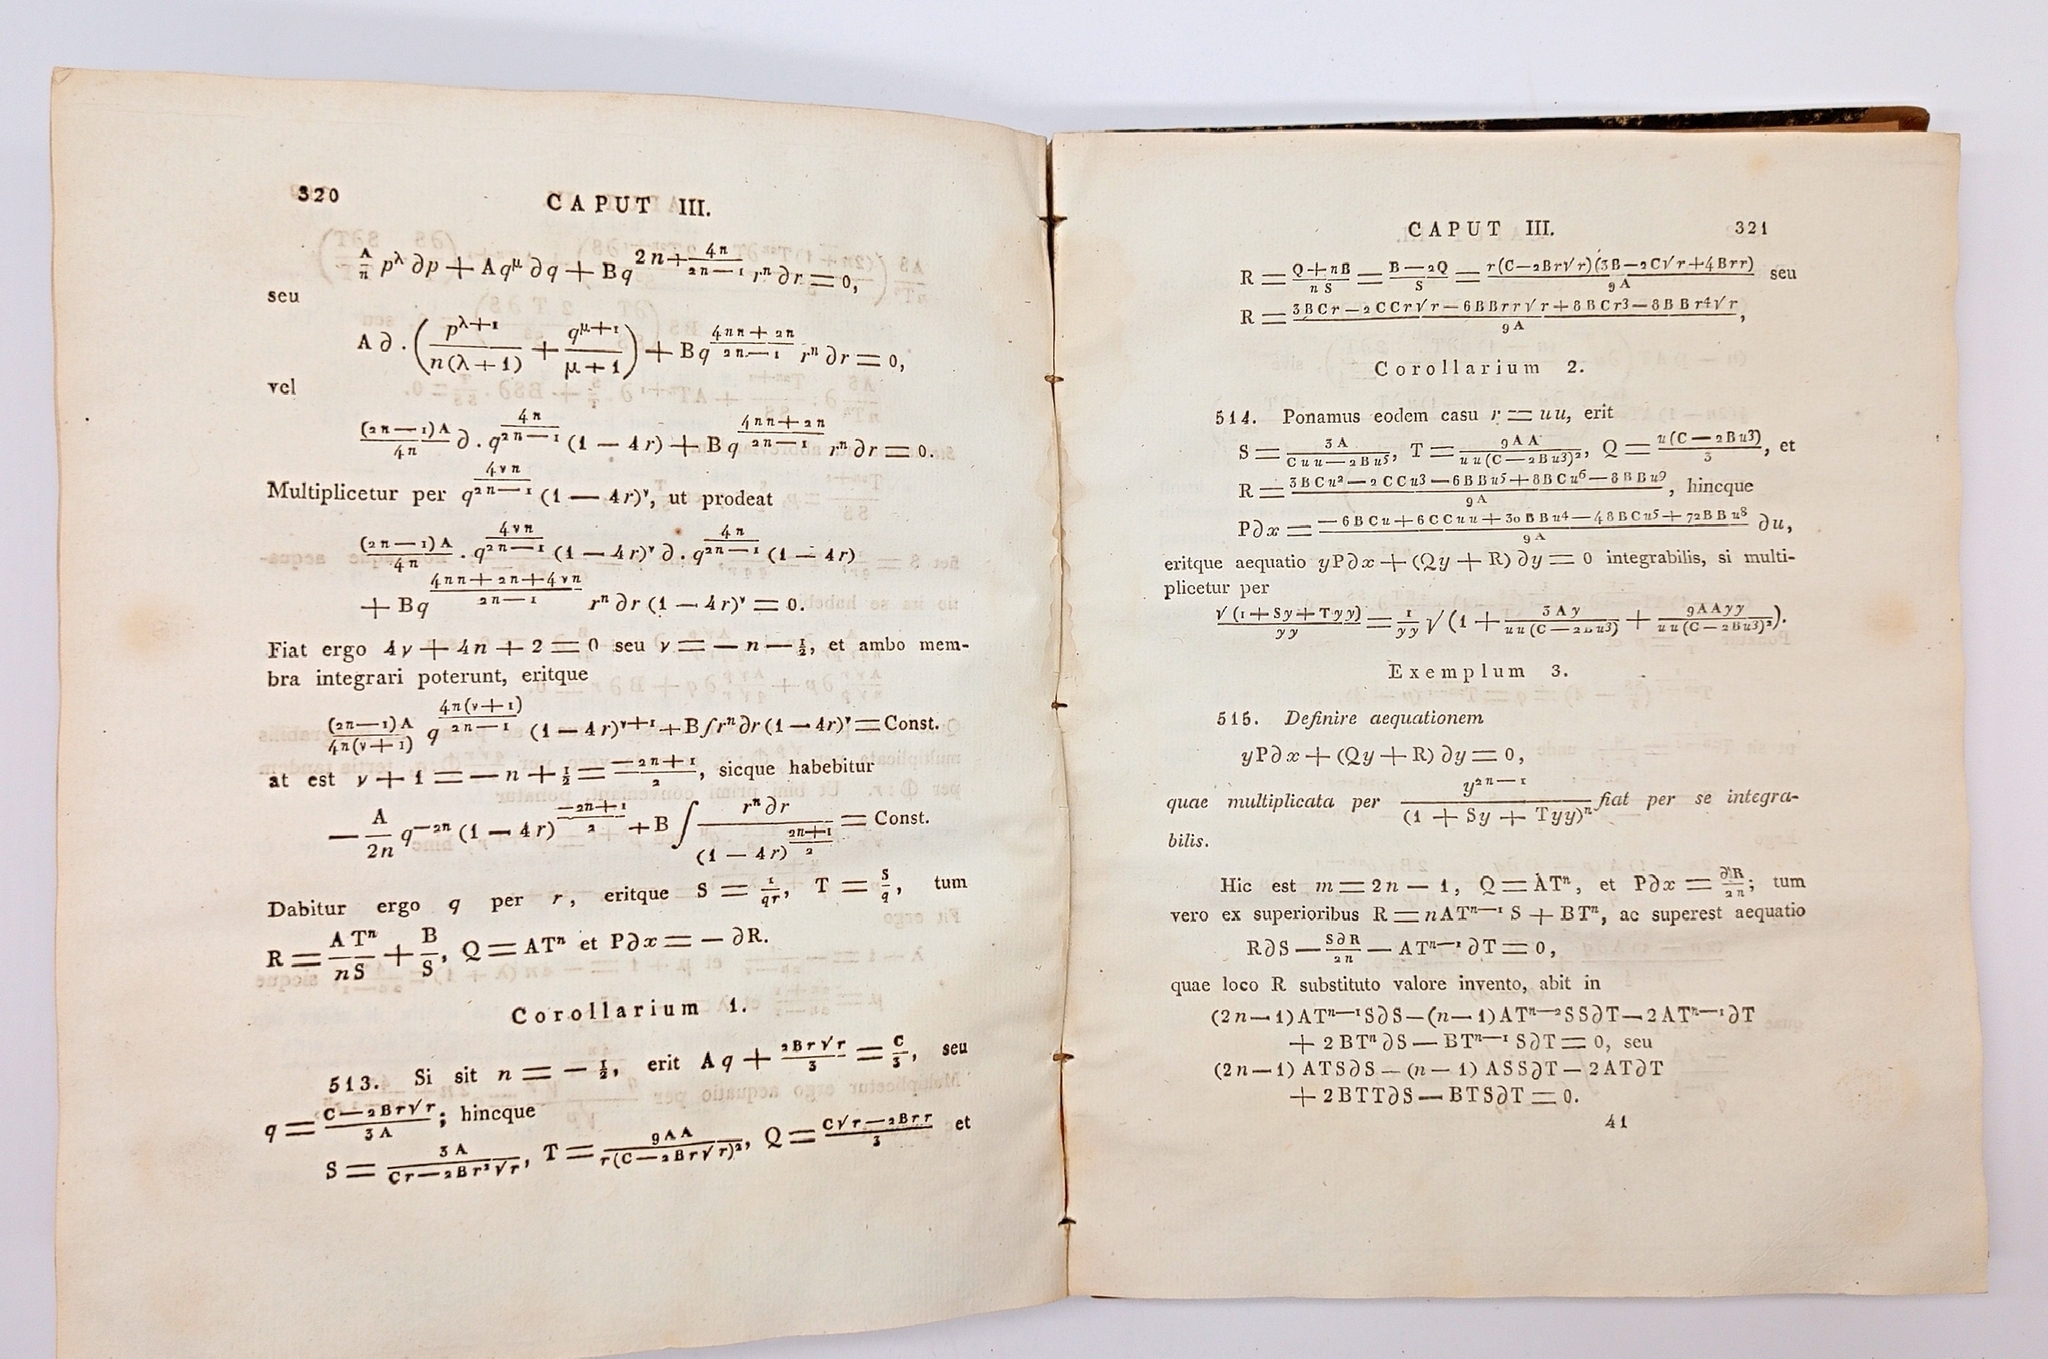 320 CAPUT III.
A/n p^λ ∂p + A q^μ ∂q + B q^(2n + 4n/(2n—1)) r^n ∂r = 0,
seu
A∂.(p^(λ+1)/(n(λ+1)) + q^(μ+1)/(μ+1)) + B q^((4nn+2n)/(2n—1)) r^n ∂r = 0,
vel
(2n—1)A/4n ∂. q^(4n/(2n—1)) (1 — 4r) + B q^((4nn+2n)/(2n—1)) r^n ∂r = 0.
Multiplicetur per q^(4νn/(2n—1)) (1 — 4r)^ν, ut prodeat
(2n—1)A/4n . q^(4νn/(2n—1)) (1 — 4r)^ν ∂. q^(4n/(2n—1)) (1 — 4r)
+ B q^((4nn+2n+4νn)/(2n—1)) r^n ∂r (1 — 4r)^ν = 0.
Fiat ergo 4ν + 4n + 2 = 0 seu ν = — n — 1/2, et ambo mem-
bra integrari poterunt, eritque
(2n—1)A/(4n(ν+1)) q^(4n(ν+1)/(2n—1)) (1 — 4r)^(ν+1) + B∫r^n ∂r (1 — 4r)^ν = Const.
at est ν + 1 = — n + 1/2 = (—2n+1)/2, sicque habebitur
— A/2n q^(—2n) (1 — 4r)^((—2n+1)/2) + B ∫ r^n ∂r/(1 — 4r)^((2n+1)/2) = Const.
Dabitur ergo q per r, eritque S = 1/qr, T = S/q, tum
R = AT^n/nS + B/S, Q = AT^n et P∂x = — ∂R.
Corollarium 1.
513. Si sit n = — 1/2, erit Aq + 2Br√r/3 = C/3, seu
q = (C—2Br√r)/3A; hincque
S = 3A/(Cr—2Br²√r), T = 9AA/(r(C—2Br√r)²), Q = (C√r—2Brr)/3 et
CAPUT III. 321
R = (Q+nB)/nS = (B—2Q)/S = r(C—2Br√r)(3B—2C√r+4Brr)/9A seu
R = (3BCr—2CCr√r—6BBrr√r+8BCr3—8BBr4√r)/9A,
Corollarium 2.
514. Ponamus eodem casu r = uu, erit
S = 3A/(Cuu—2Bu5), T = 9AA/(uu(C—2Bu3)²), Q = u(C—2Bu3)/3, et
R = (3BCu²—2CCu3—6BBu5+8BCu6—8BBu9)/9A, hincque
P∂x = (—6BCu+6CCuu+30BBu4—48BCu5+72BBu8)/9A ∂u,
eritque aequatio yP∂x + (Qy + R)∂y = 0 integrabilis, si multi-
plicetur per
√(1+Sy+Tyy)/yy = 1/yy √(1 + 3Ay/(uu(C—2Bu3)) + 9AAyy/(uu(C—2Bu3)²)).
Exemplum 3.
515. Definire aequationem
yP∂x + (Qy + R)∂y = 0,
quae multiplicata per y^(2n—1)/(1 + Sy + Tyy)^n fiat per se integra-
bilis.
Hic est m = 2n — 1, Q = AT^n, et P∂x = ∂R/2n; tum
vero ex superioribus R = nAT^(n—1) S + BT^n, ac superest aequatio
R∂S — S∂R/2n — AT^(n—1) ∂T = 0,
quae loco R substituto valore invento, abit in
(2n—1)AT^(n—1)S∂S—(n—1)AT^(n—2)SS∂T—2AT^(n—1)∂T
+ 2BT^n ∂S — BT^(n—1) S∂T = 0, seu
(2n—1) ATS∂S — (n—1) ASS∂T — 2AT∂T
+ 2BTT∂S — BTS∂T = 0.
41